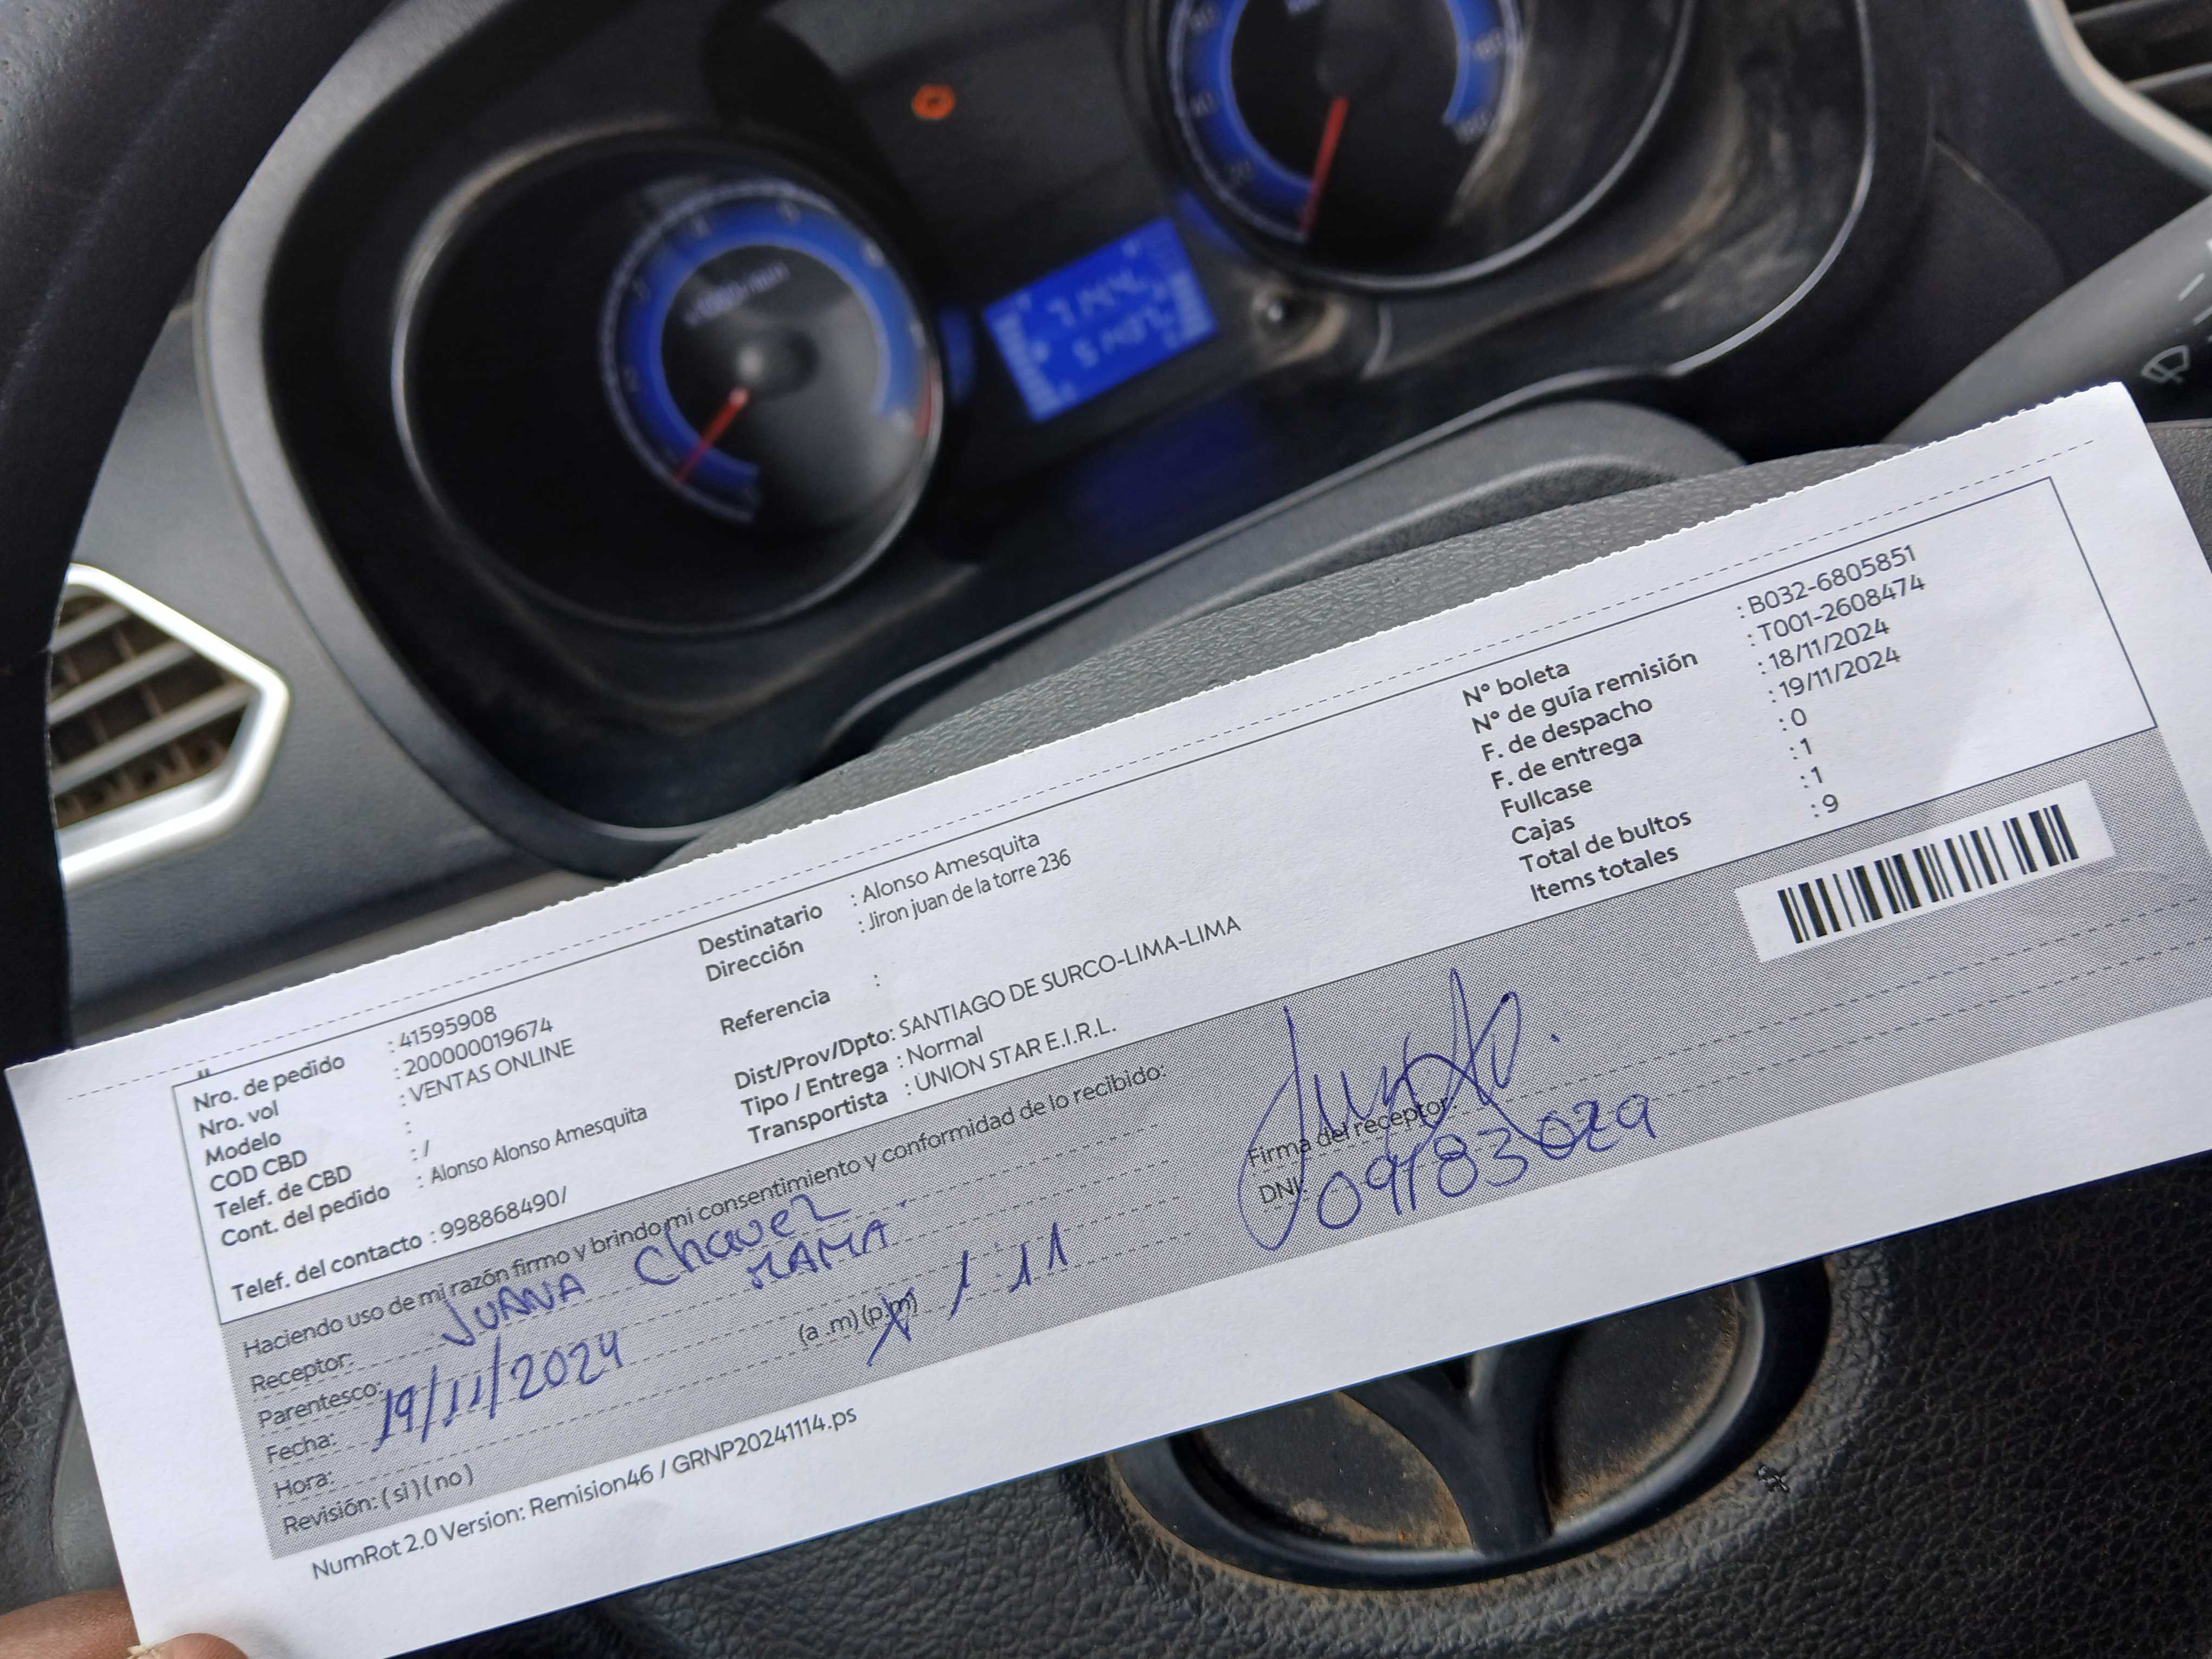 Nro. de pedido : 41595908
Nro. vol : 200000019674
Modelo : VENTAS ONLINE
COD CBD :
Telef. de CBD : /
Cont. del pedido : Alonso Alonso Amesquita
Telef. del contacto : 998868490/
Destinatario : Alonso Amesquita
Dirección : Jiron juan de la torre 236
Referencia :
Dist/Prov/Dpto: SANTIAGO DE SURCO-LIMA-LIMA
Tipo / Entrega : Normal
Transportista : UNION STAR E.I.R.L.
N° boleta : B032-6805851
N° de guía remisión : T001-2608474
F. de despacho : 18/11/2024
F. de entrega : 19/11/2024
Fullcase : 0
Cajas : 1
Total de bultos : 1
Items totales : 9
Haciendo uso de mi razón firmo y brindo mi consentimiento y conformidad de lo recibido:
Receptor: JUANA Chavez
Parentesco: MAMA
Fecha: 19/11/2024
Hora: (a .m) (p.m) 1:11
Revisión: ( si ) ( no )
Firma del receptor:
DNI: 09183029
NumRot 2.0 Version: Remision46 / GRNP20241114.ps